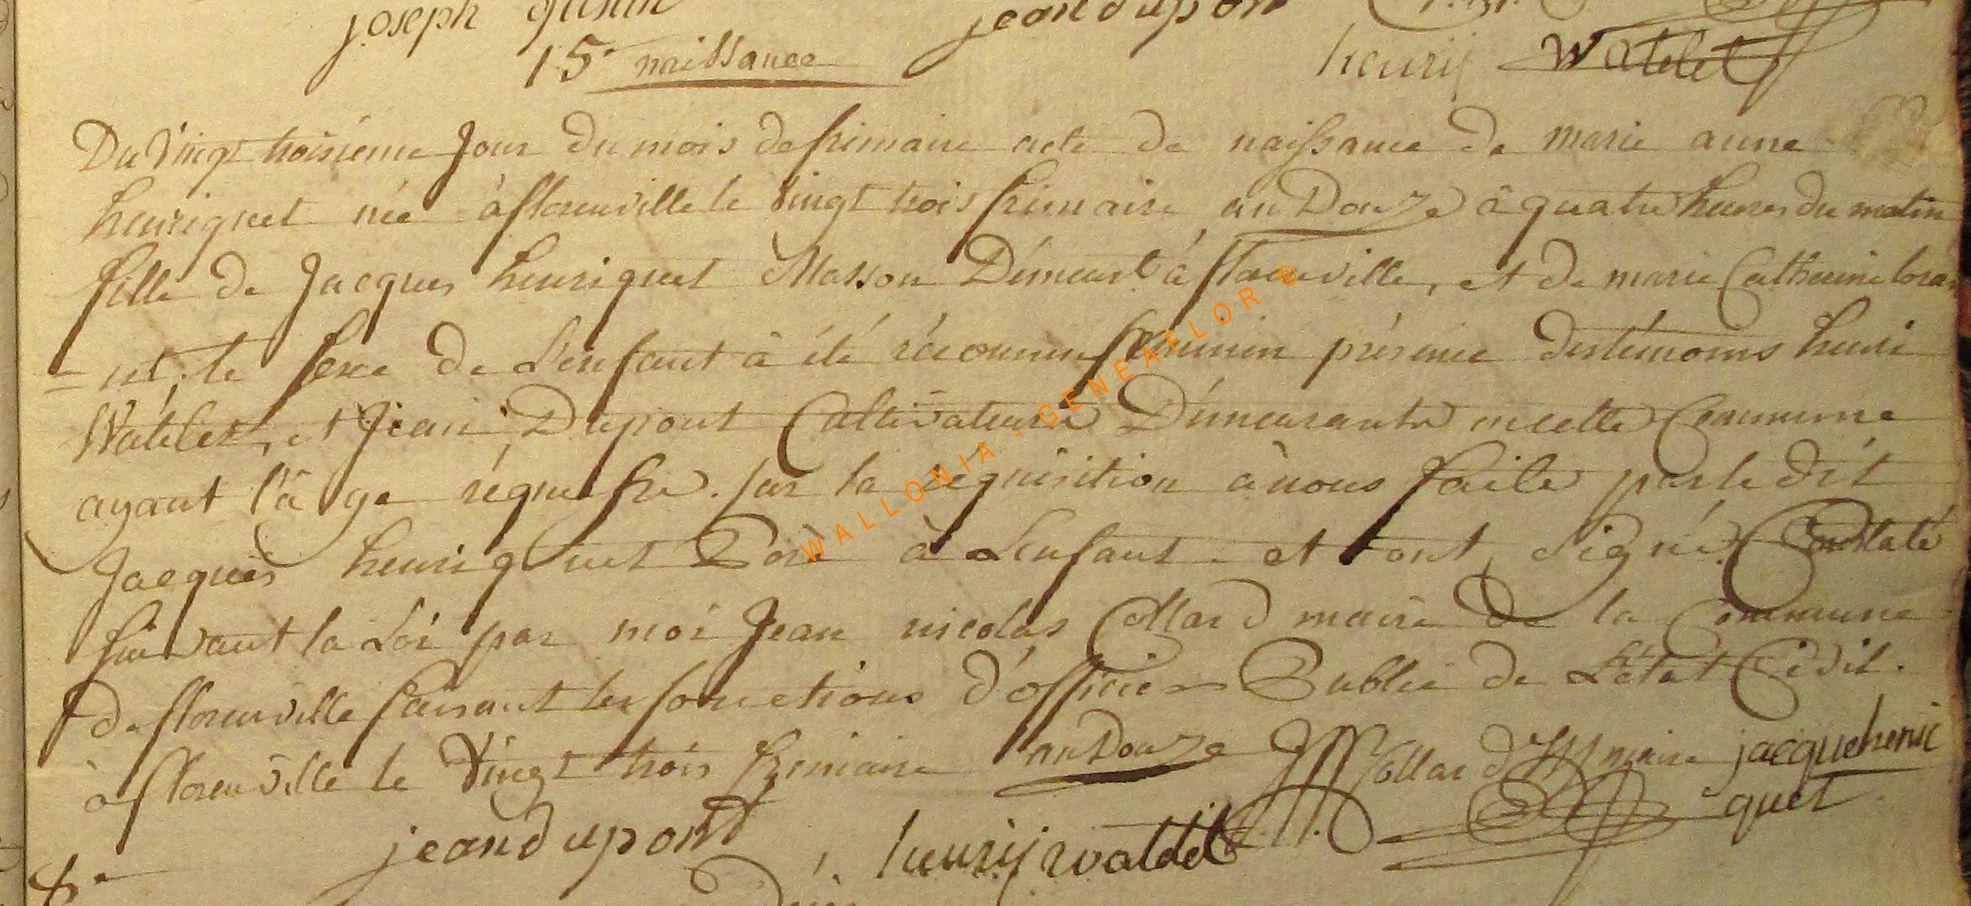 joseph
jean dupont
15e naissance
henrij Watelet
Du Vingt troisieme Jour Du mois de frimaire acte De naissance De marie anne
henriquet née à florenville le Vingt trois frimaire an Douze à quatre heures du matin
fille de Jacques henriquet Masson Démeurt à florenville, et de marie Catherine lora
= nt, le sexe de L'enfant à été réconnu féminin présence des témoins henri
Watelet, et Jean Dupont Cultivateurs Démeurante en cette Commune
ayant l'âge réquise. sur la réquisition à nous faite par le dit
Jacques henriquet Pere à L'enfant et ont signé. Constaté
suivant la Loi par moi Jean nicolas Collard maire de la Commune
de florenville faisant les fonctions d'officier Public de L'état Civil.
à florenville le Vingt trois frimaire an Douze Collard maire jacque henri
quet
jean dupont henrij watelet